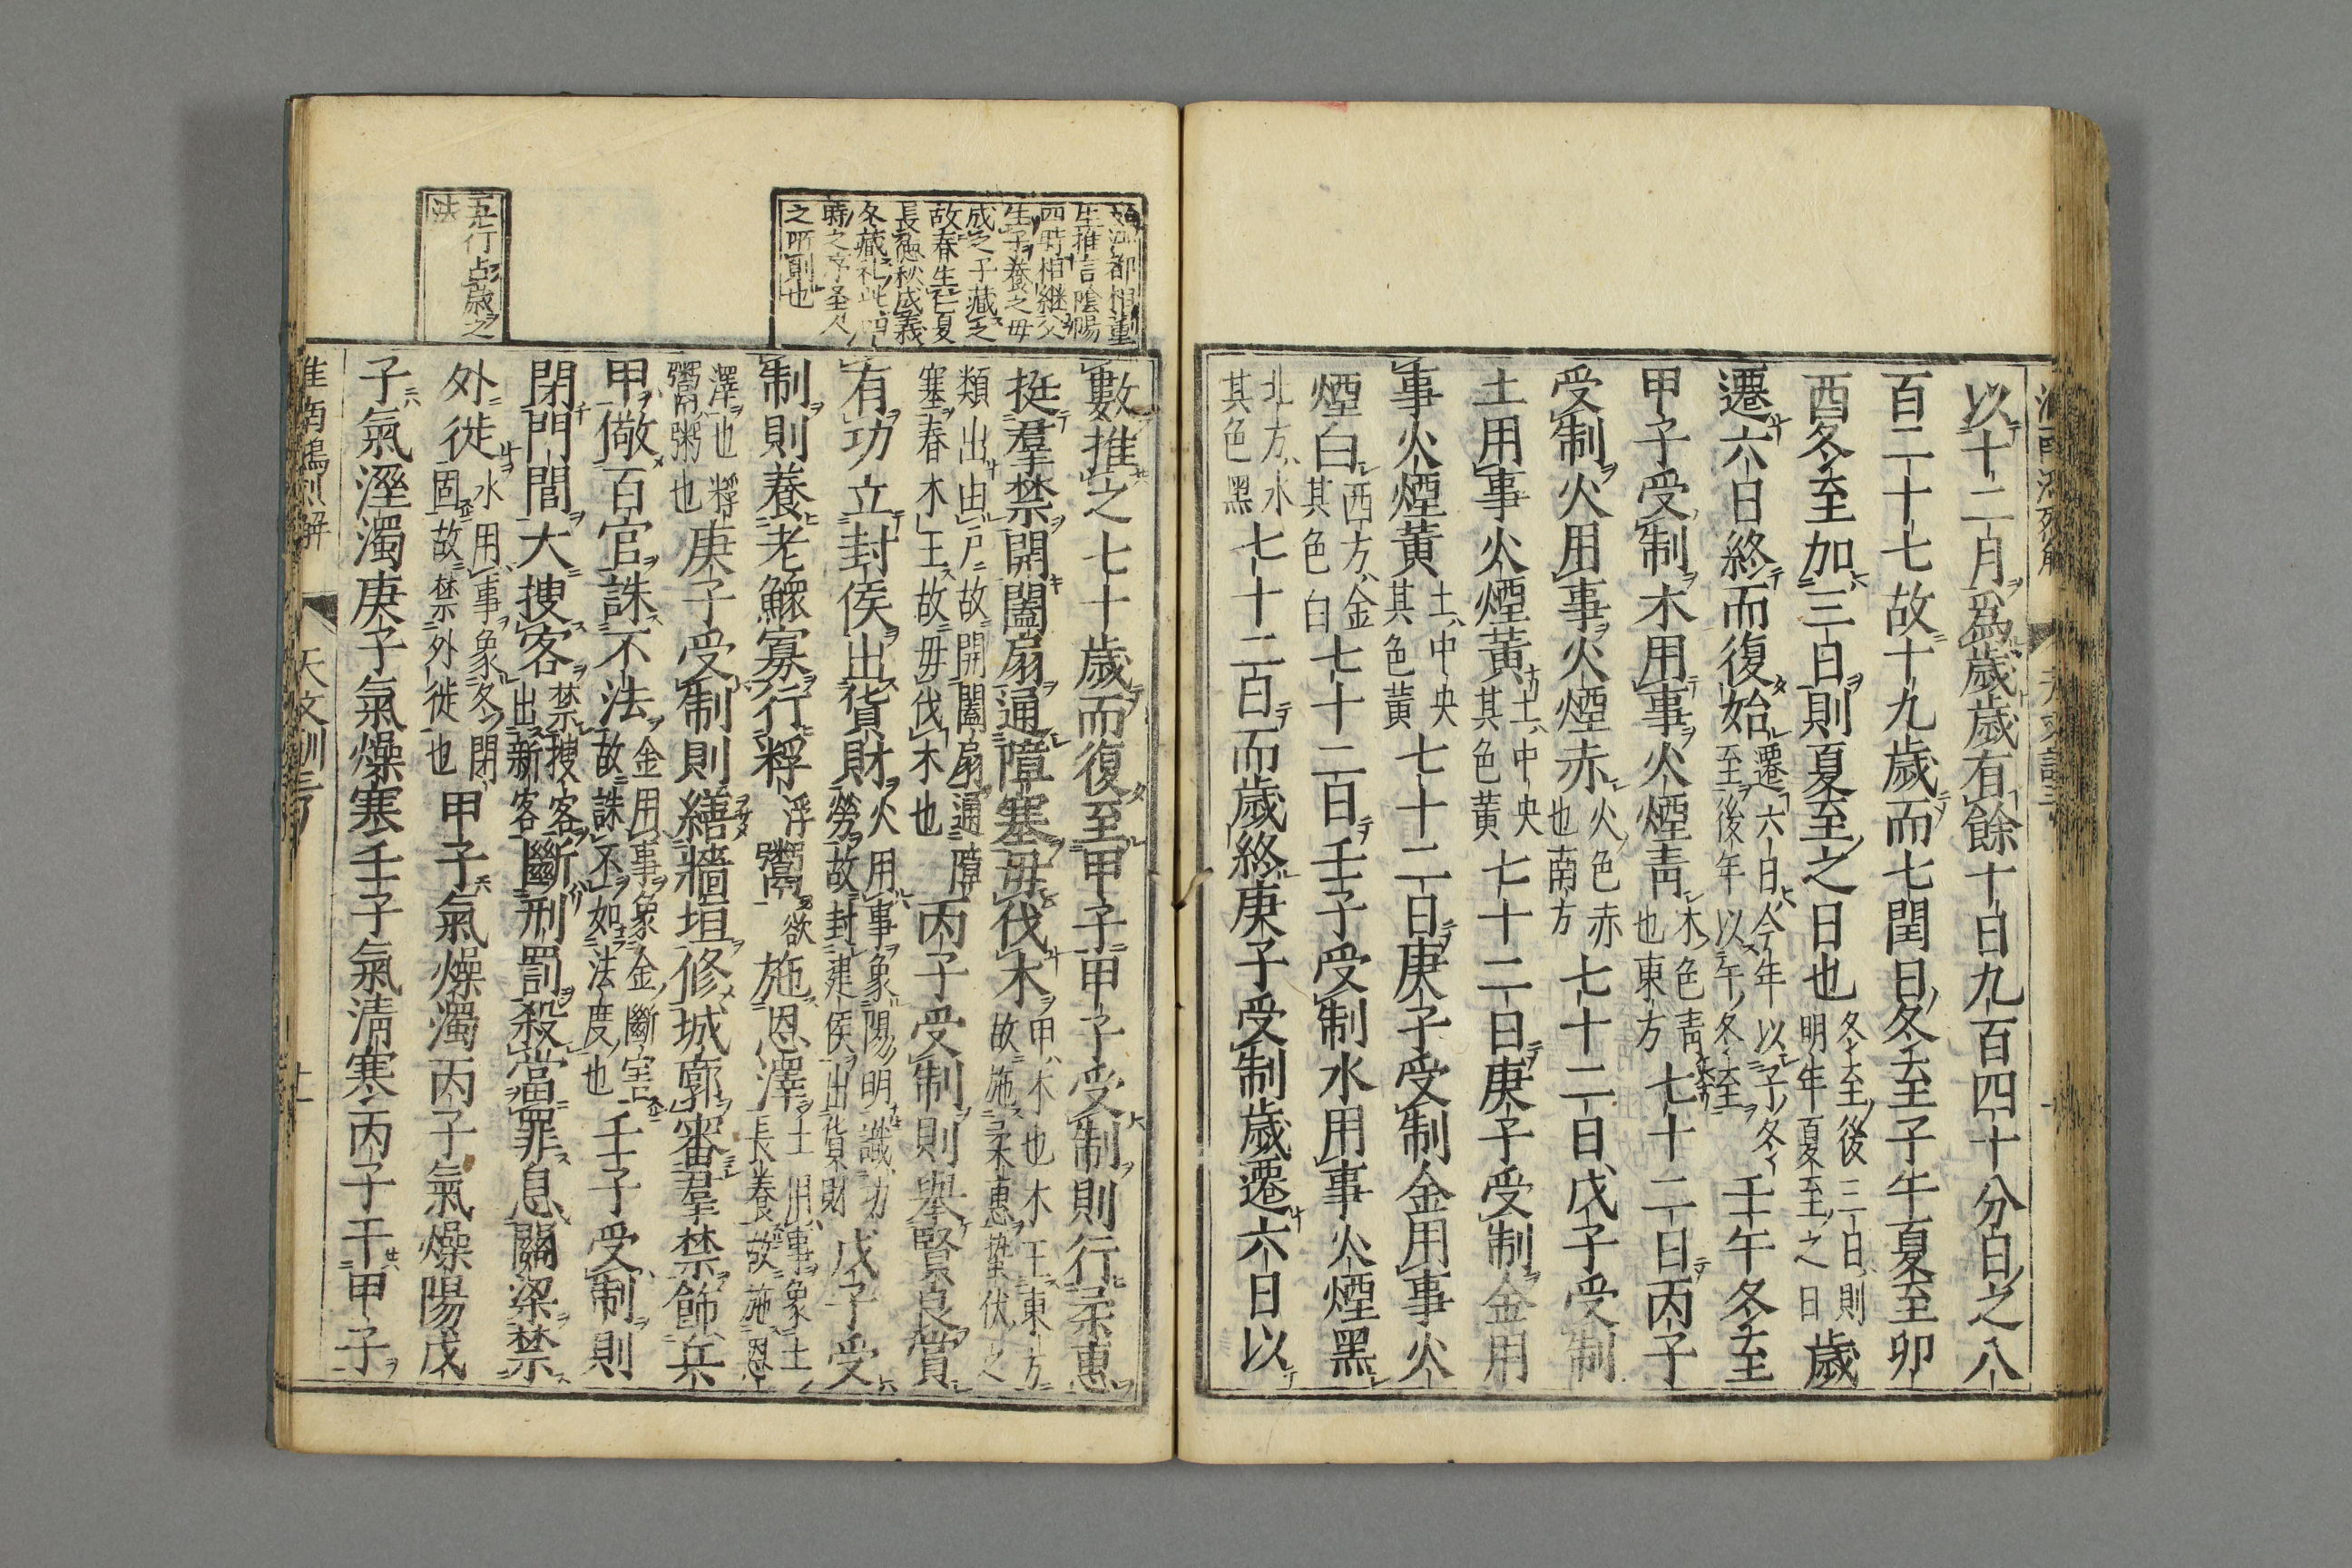 以十二月爲歲歲有餘十日九百四十分日之八
百二十七故十九歲而七閏日冬至子午夏至卯
酉冬至加三日則夏至之日也冬至後三日則明年夏至之日歲
遷六日終而復始遷六日今年以子冬至後年以午冬至壬午冬至
甲子受制木用事火煙靑木色靑也東方七十二日丙子
受制火用事火煙赤火色赤也南方七十二日戊子受制
土用事火煙黃土中央其色黃七十二日庚子受制金用
事火煙黄土中央其色黄七十二日庚子受制金用事火
煙白西方金其色白七十二日壬子受制水用事火煙黑
北方水其色黑七十二日而歲終庚子受制歲遷六日以
四時相繼父
生子養之母
成之子藏之
故春生仁夏
長德秋成義
冬藏礼此四
時之序圣人
之所則也
數推之七十歲而復至甲子甲子受制則行柔惠
挺羣禁開闔扇通障塞毋伐木甲木也木王東方故施柔惠蟄伏之
類出由戶故開闔扇通障塞春木王故毋伐木也丙子受制則舉賢良賞
有功立封侯出貨財火用事象陽明識功勞故封建侯出貨財戊子受
制則養老鰥寡行稃浮鬻欲施恩澤土用事象土長養故施恩
澤也稃鬻粥也庚子受制則繕牆垣修城廓審羣禁飾兵
甲儆百官誅不法金用事象金斷割故誅不如法度也壬子受制則
閉門閭大搜客禁搜客出新客斷刑罰殺當罪息關梁禁
外徙水用事象冬閉固故禁外徙也甲子氣燥濁丙子氣燥陽戊
子氣溼濁庚子氣燥寒壬子氣淸寒丙子干甲子
五行占歲之
法
天文訓三